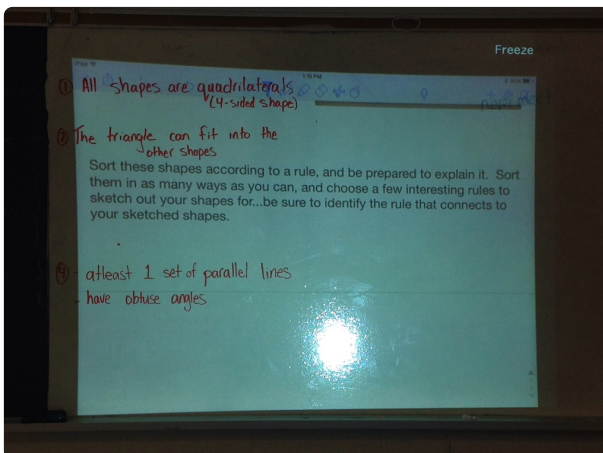 Freeze
iPad
1:15 PM
① All shapes are quadrilaterals
(4-sided shape)
② The triangle can fit into the
other shapes
Sort these shapes according to a rule, and be prepared to explain it. Sort
them in as many ways as you can, and choose a few interesting rules to
sketch out your shapes for...be sure to identify the rule that connects to
your sketched shapes.
④ - atleast 1 set of parallel lines
- have obtuse angles